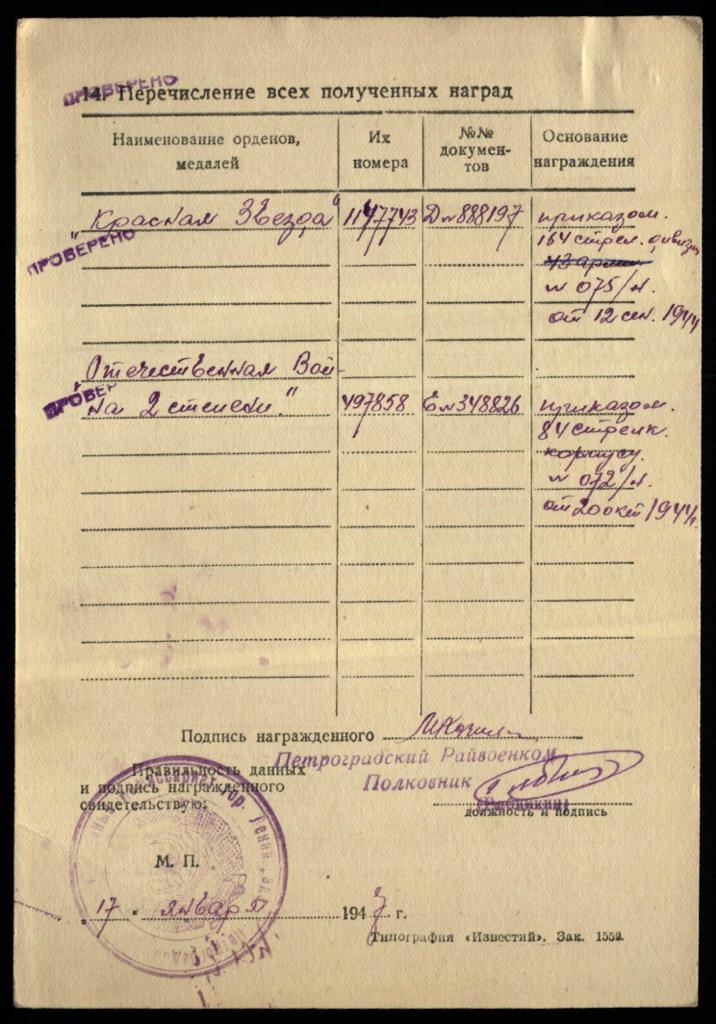 ПРОВЕРЕНО
14. Перечисление всех полученных наград
Наименование орденов, медалей
Их номера
№№ документов
Основание награждения
„Красная Звезда" 1147743 Д № 888197 приказом.
ПРОВЕРЕНО
164 стрел. дивизии
43 армии
№ 075/н.
от 12 сен. 1944
„Отечественная Вой-
ПРОВЕР
на 2 степени." 497858 Е № 348826 приказом.
84 стрелк.
корпусу.
№ 072/н.
от 20 окт 1944 г.
Подпись награжденного
Петроградский Райвоенком
Правильность данных
Полковник
и подпись награжденного
свидетельствую:
должность и подпись
М. П.
„17" января 1947 г.
Типография «Известий». Зак. 1559.